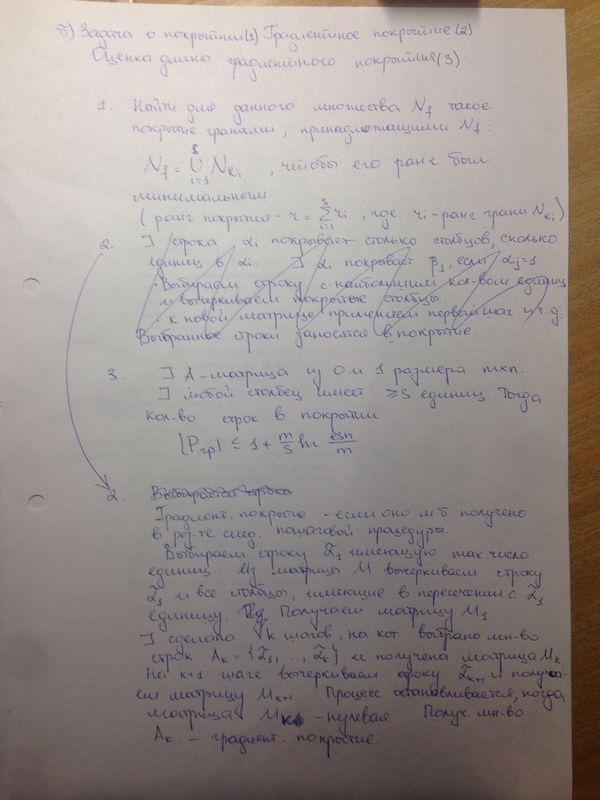 б) Задача о покрытии(1) Градиентное покрытие(2)
Оценка длины градиентного покрытия(3).
1. Найти для данного множества N_f такое
покрытие гранями, принадлежащими N_f:
N_f = ⋃_{i=1}^{s} N_{K_i}, чтобы его ранг был
минимальным
(ранг покрытия - r = ∑_{i=1}^{s} r_i, где r_i - ранг грани N_{K_i})
2. ] строка α_i покрывает столько столбцов, сколько
единиц в α_i. ] α_i покрывает β_j, если α_{ij}=1
Выбираем строку с наибольшим кол-вом единиц
и вычеркиваем покрытые столбцы.
к новой матрице применяем первый шаг и т.д.
Выбранные строки заносятся в покрытие.
3. ] A-матрица из 0 и 1 размера m×n.
] любой столбец имеет ≥ S единиц. Тогда
кол-во строк в покрытии
|P_{гр}| ≤ 1 + m/s ln esn/m
2. Выбирается строка
Градиент. покрытие - если оно м.б. получено
в рез-те след. пошаговой процедуры.
Выбираем строку α̃_1 имеющую max число
единиц. Из матрицы M вычеркиваем строку
α̃_1 и все столбцы, имеющие в пересечении с α̃_1
единицу. Получаем матрицу M_1.
] сделано k шагов, на кот. выбрано мн-во
строк A_k = {α̃_1, ..., α̃_k} и получена матрица M_k
На k+1 шаге вычеркиваем строку α̃_{k+1} и получа-
ем матрицу M_{k+1}. Процесс останавливается, когда
матрица M_k - нулевая Получ. мн-во
A_k - градиент. покрытие.